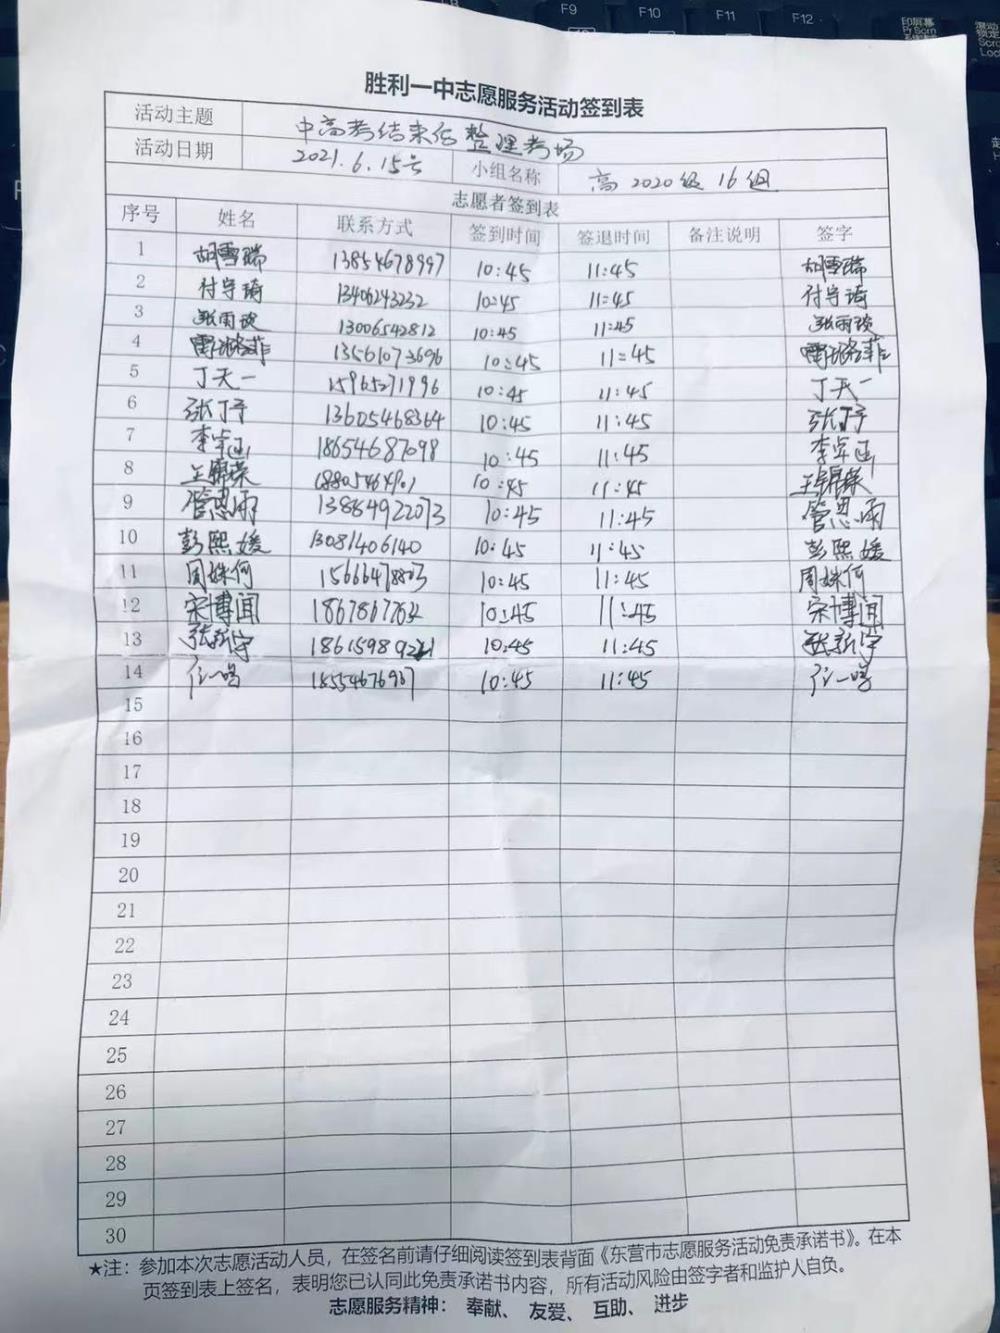 F9 F10 F11 F12 印屏幕
Pr Scrn
胜利一中志愿服务活动签到表
活动主题 中高考结束后整理考场
活动日期 2021.6.15号 小组名称 高2020级16组
志愿者签到表
序号 姓名 联系方式 签到时间 签退时间 备注说明 签字
1 胡雪瑞 13854678997 10:45 11:45 胡雪瑞
2 付宇琦 13406243232 10:45 11:45 付宇琦
3 张雨政 13006542812 10:45 11:45 张雨政
4 13561073696 10:45 11:45
5 丁天一 15965271996 10:45 11:45 丁天一
6 张丁予 13605468364 10:45 11:45 张丁予
7 李宇函 18654687098 10:45 11:45 李宇函
8 王锦荣 10:45 11:45 王锦荣
9 管恩雨 13864922073 10:45 11:45 管恩雨
10 彭熙媛 13081406140 10:45 11:45 彭熙媛
11 周姝何 10:45 11:45 周姝何
12 宋博闻 10:45 11:45 宋博闻
13 张新宇 10:45 11:45 张新宇
14 10:45 11:45
15
16
17
18
19
20
21
22
23
24
25
26
27
28
29
30
★注：参加本次志愿活动人员，在签名前请仔细阅读签到表背面《东营市志愿服务活动免责承诺书》。在本
页签到表上签名，表明您已认同此免责承诺书内容，所有活动风险由签字者和监护人自负。
志愿服务精神： 奉献、 友爱、 互助、 进步